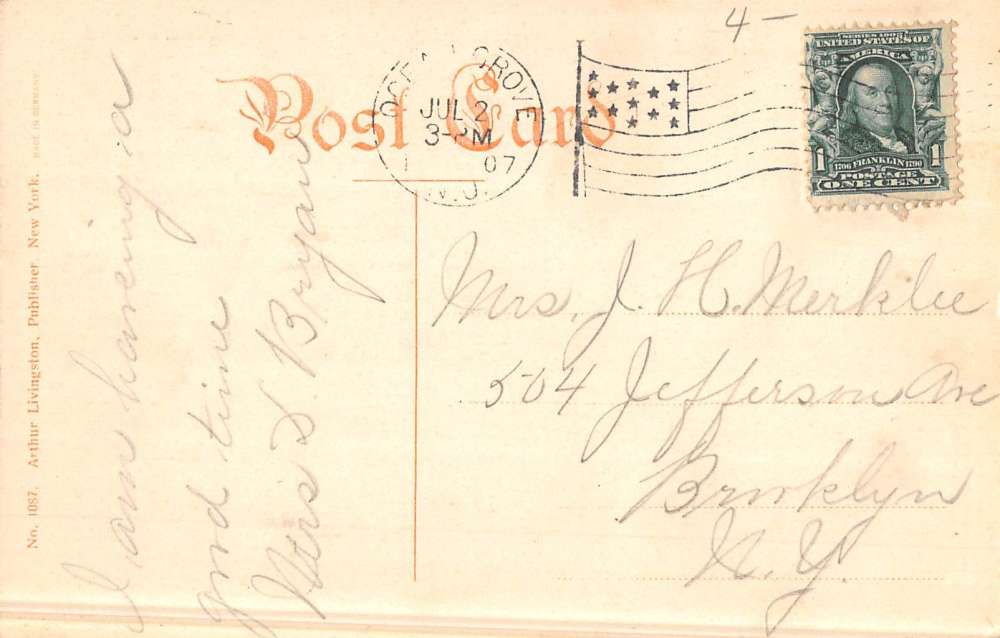 4-
Post Card
OCEAN GROVE
JUL 2
3- PM
07
N.J.
SERIES 1902
UNITED STATES OF
AMERICA
1 1706 FRANKLIN 1790 1
POSTAGE
ONE CENT
Mrs. J. H. Merklee
504 Jefferson Ave
Brooklyn
N. Y.
I am haveing a
good time
Mrs D. Bryan
No. 1087. Arthur Livingston, Publisher, New York. MADE IN GERMANY.